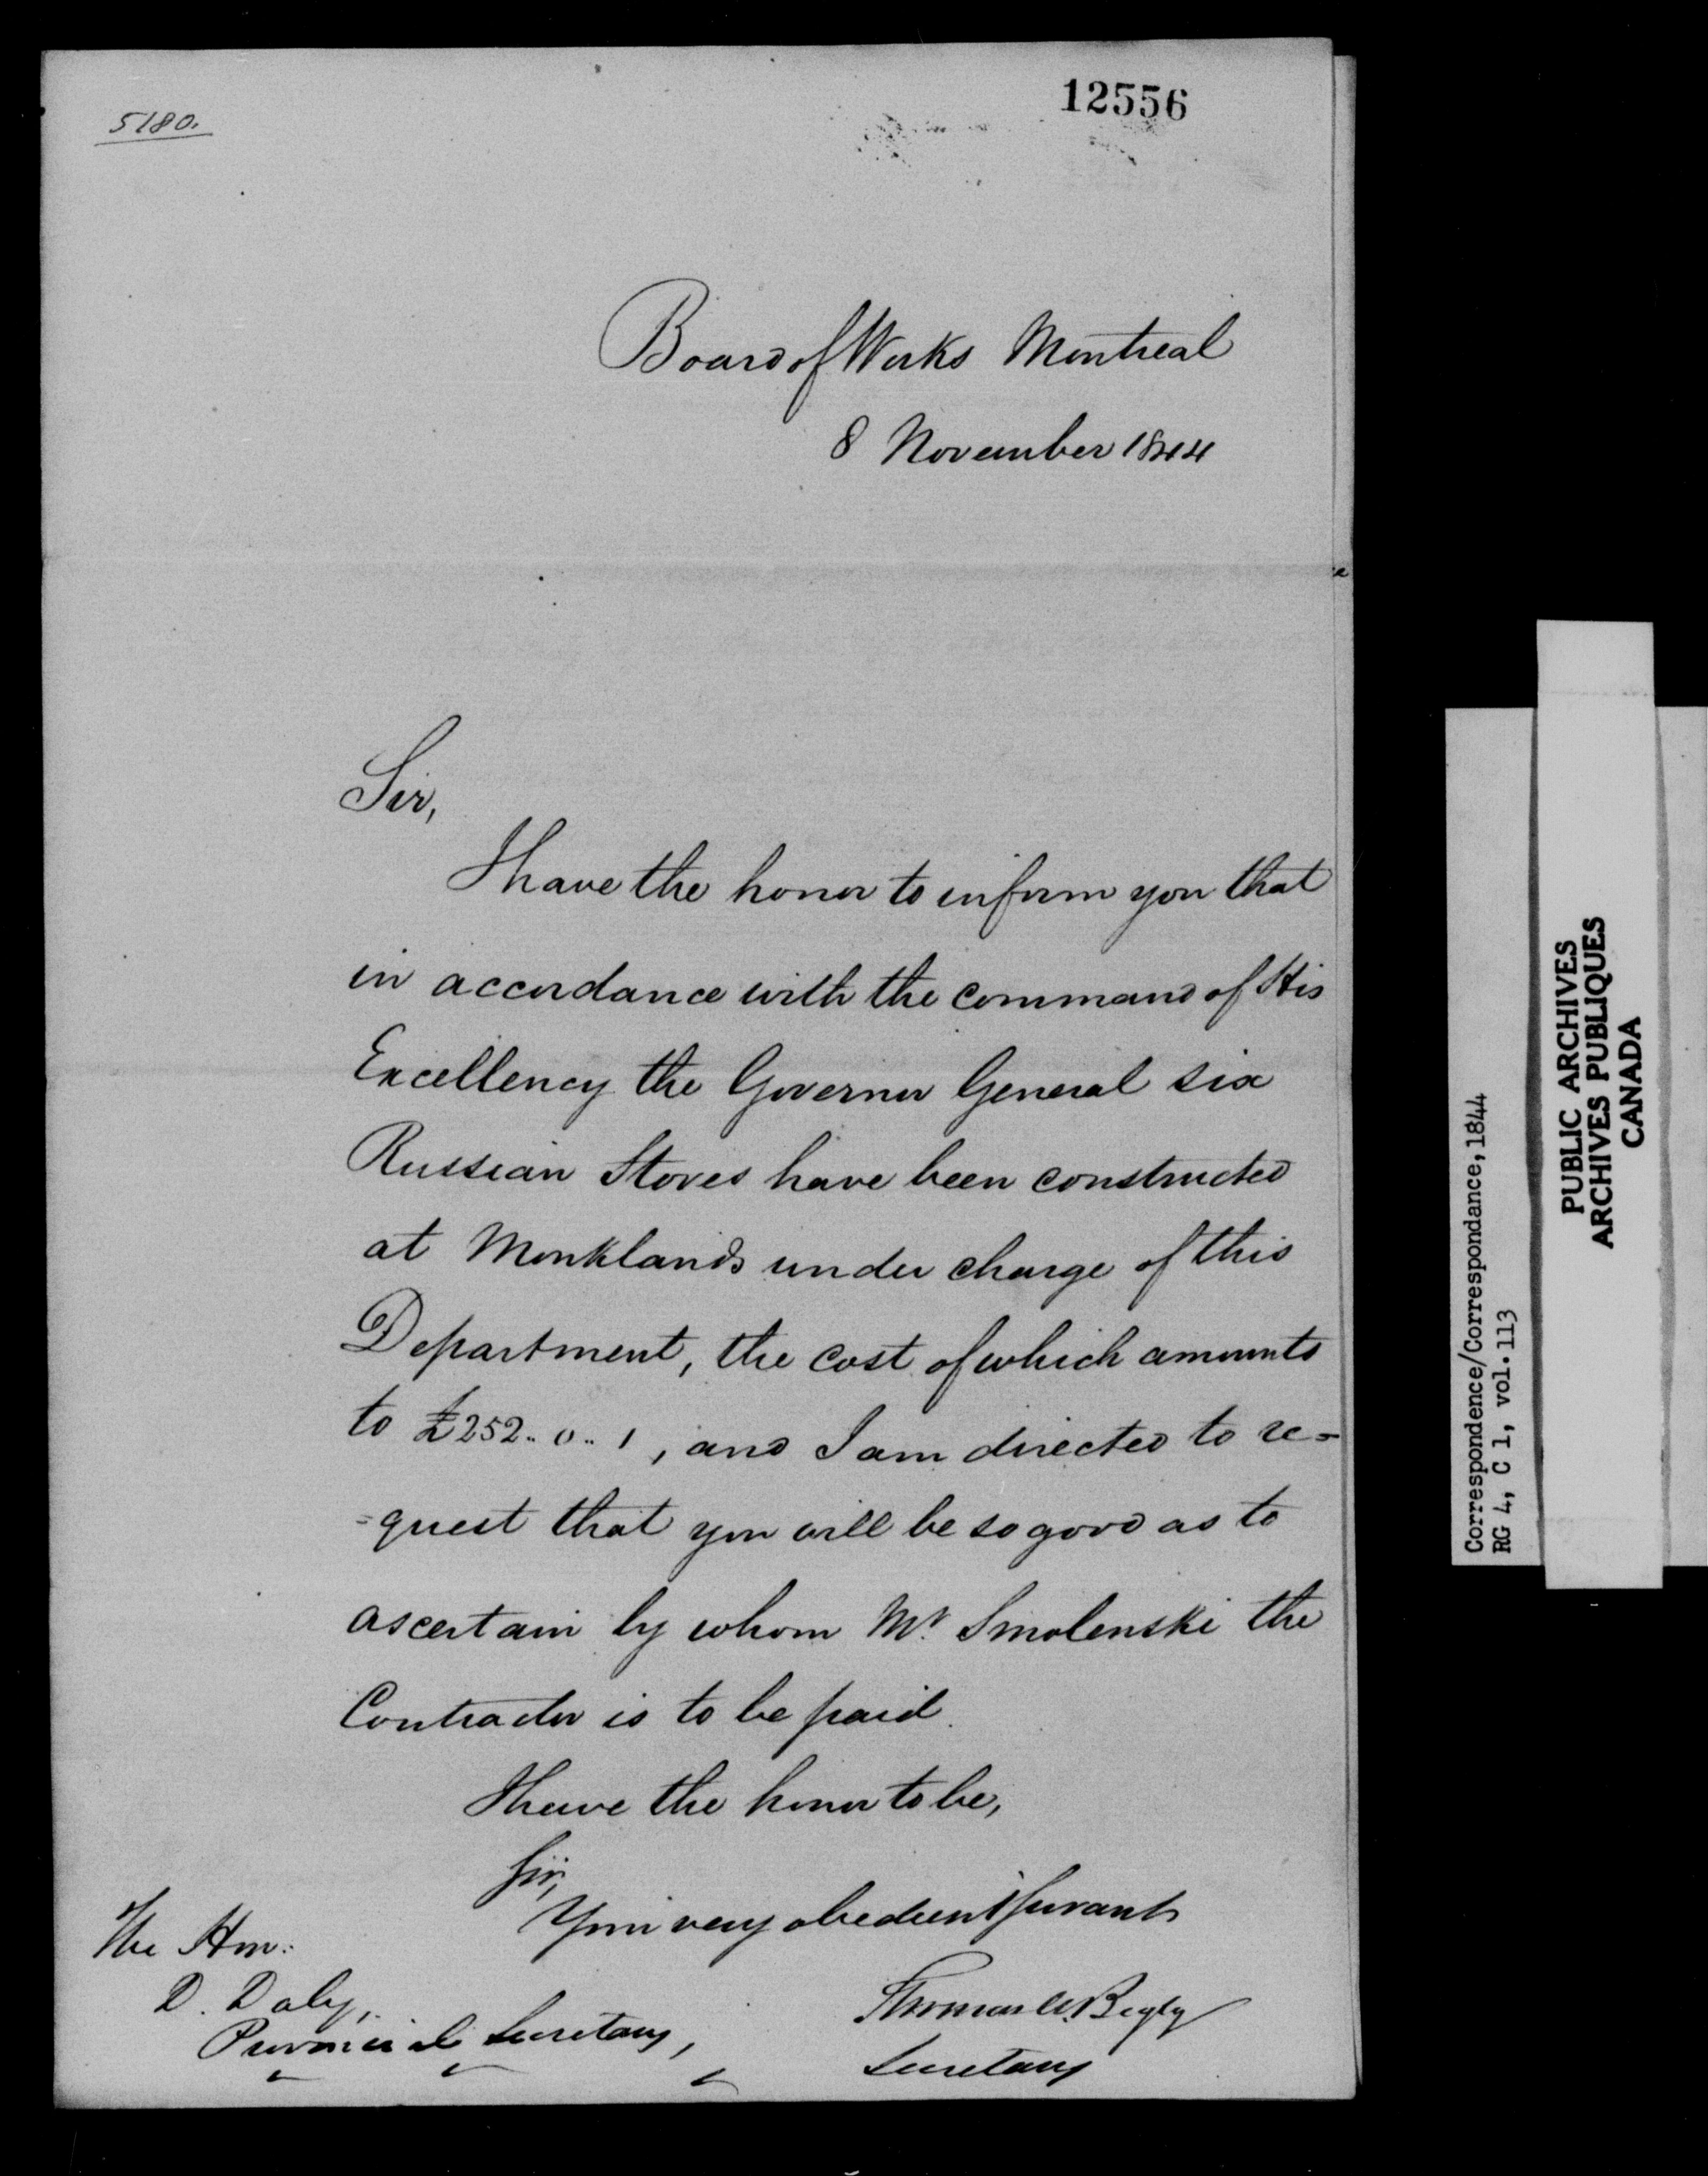 5180.
12556
Board of Works Montreal
8 November 1844
Sir,
I have the honor to inform you that
in accordance with the command of His
Excellency the Governor General six
Russian Stoves have been constructed
at Monklands under charge of this
Department, the cost of which amounts
to £252..0..1, and I am directed to re=
=quest that you will be so good as to
ascertain by whom Mr. Smolenski the
Contractor is to be paid.
I have the honor to be,
Sir,
Your very obedient Servant
Thomas A. Begly
Secretary
The Hon:
D. Daly,
Provincial Secretary,
Correspondence/Correspondance, 1844
RG 4, C 1, vol. 113
PUBLIC ARCHIVES
ARCHIVES PUBLIQUES
CANADA